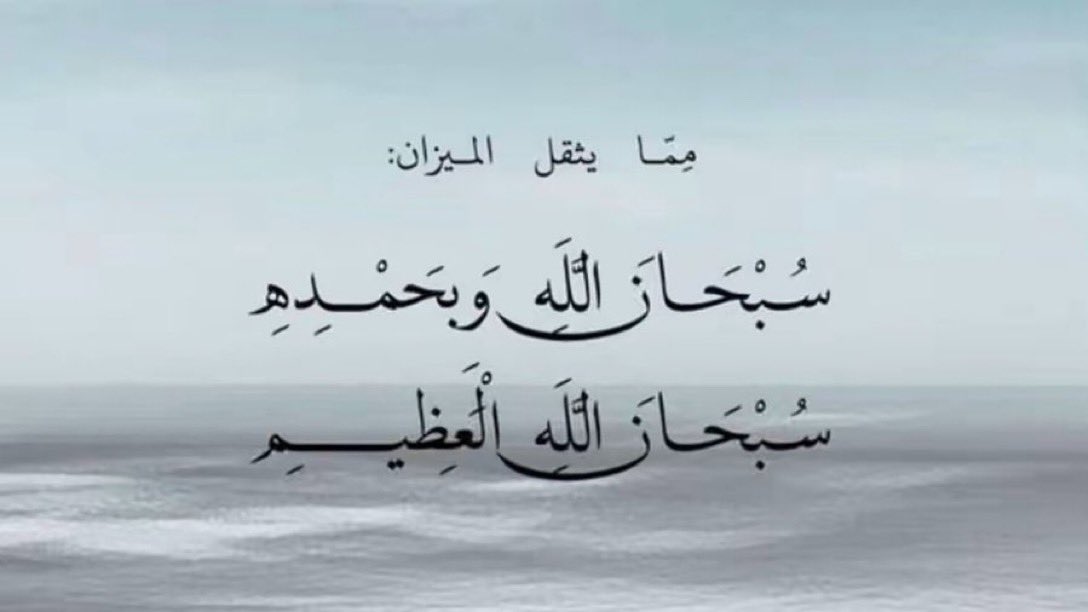 مِمَّا يثقل الميزان:
سُبْحَانَ اللَّهِ وَبِحَمْدِهِ
سُبْحَانَ اللَّهِ الْعَظِيمِ